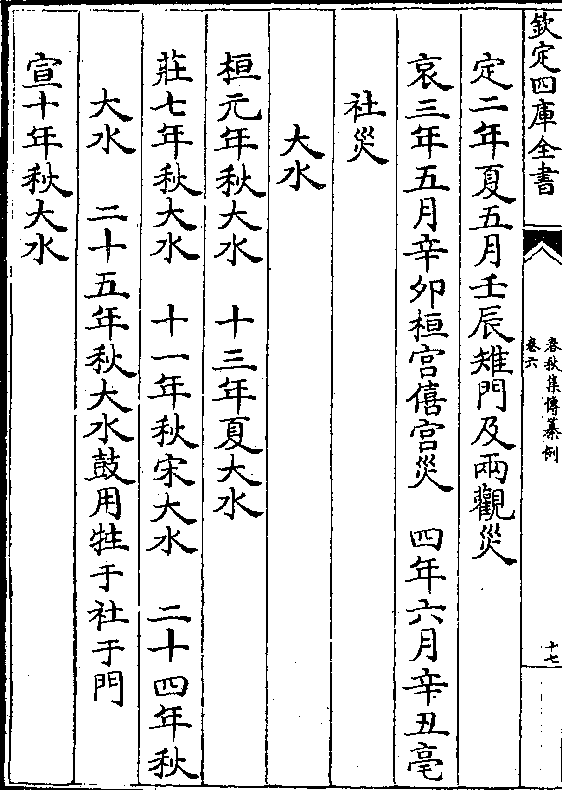 欽定四庫全書
春秋集傳纂例
卷六
十七
定二年夏五月壬辰雉門及兩觀災
哀三年五月辛卯桓宮僖宮災　四年六月辛丑亳
社災
大水
桓元年秋大水　十三年夏大水
莊七年秋大水　十一年秋宋大水　二十四年秋
大水　二十五年秋大水鼓用牲于社于門
宣十年秋大水